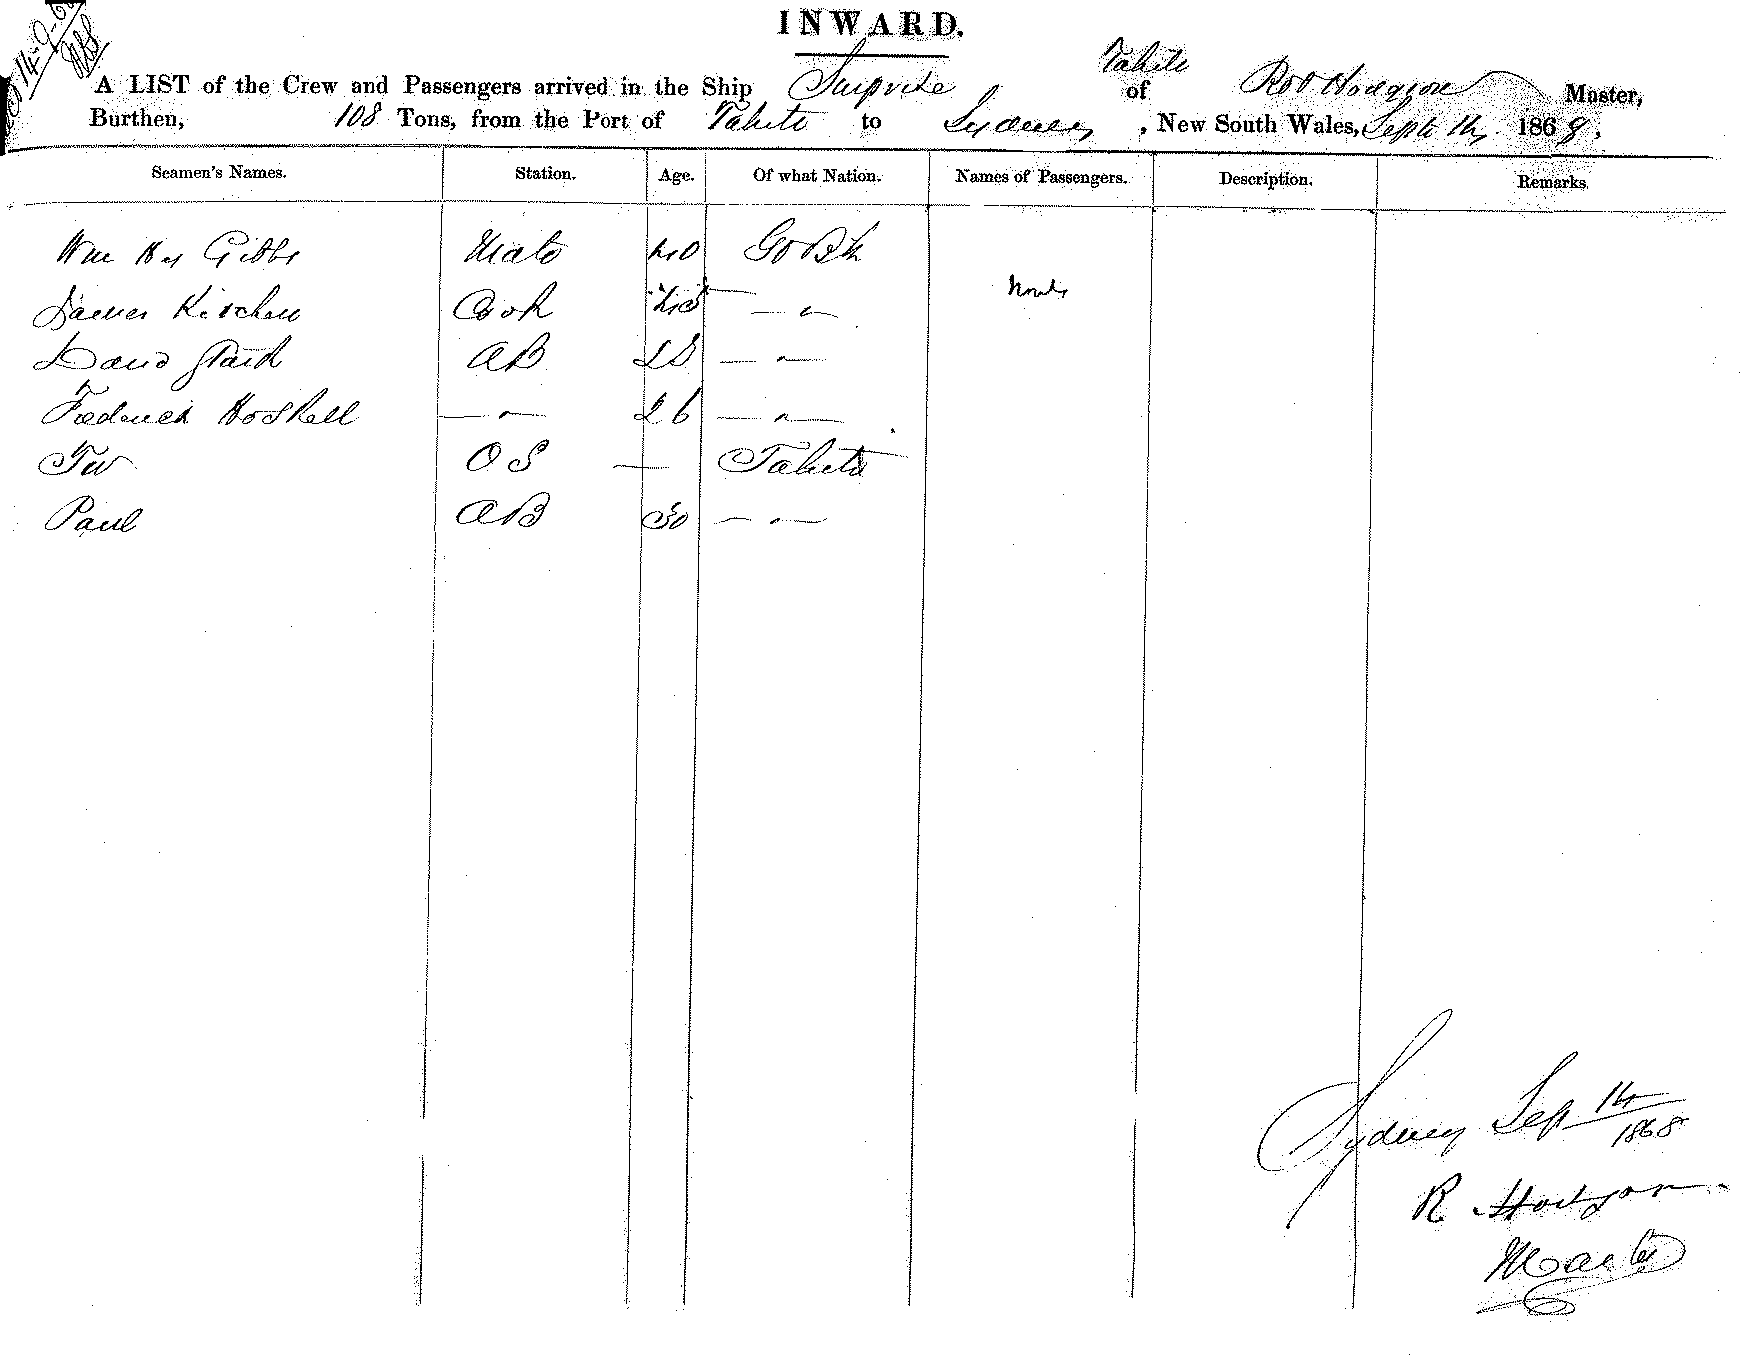 14-9-68
INWARD.
A LIST of the Crew and Passengers arrived in the Ship Surprise of Tahiti Rob Hodgson Master,
Burthen, 108 Tons, from the Port of Tahiti to Sydney, New South Wales, Septr 14 1868.
Seamen's Names. Station. Age. Of what Nation. Names of Passengers. Description. Remarks.
Wm Hy Gibbs Mate 40 Gt Bt
James Kirchen Cook — " —
None
David Stark AB 28 — " —
Frederick Hoskell — " — 26 — " —
OS — Tahiti
Paul AB 30 — " —
Sydney Sep 14
1868
R Hodgson
Master